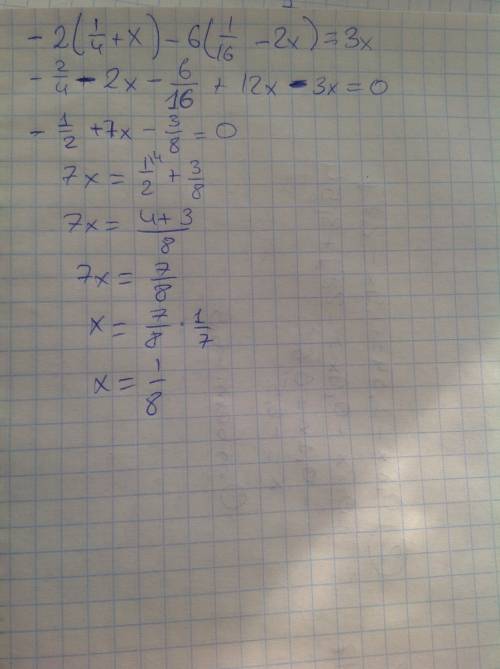 - 2(1/4 + x) - 6(1/16 - 2x) = 3x
- 2/4 - 2x - 6/16 + 12x - 3x = 0
- 1/2 + 7x - 3/8 = 0
7x = 1/2 \4 + 3/8
7x = (4+3)/8
7x = 7/8
x = 7/8 · 1/7
x = 1/8